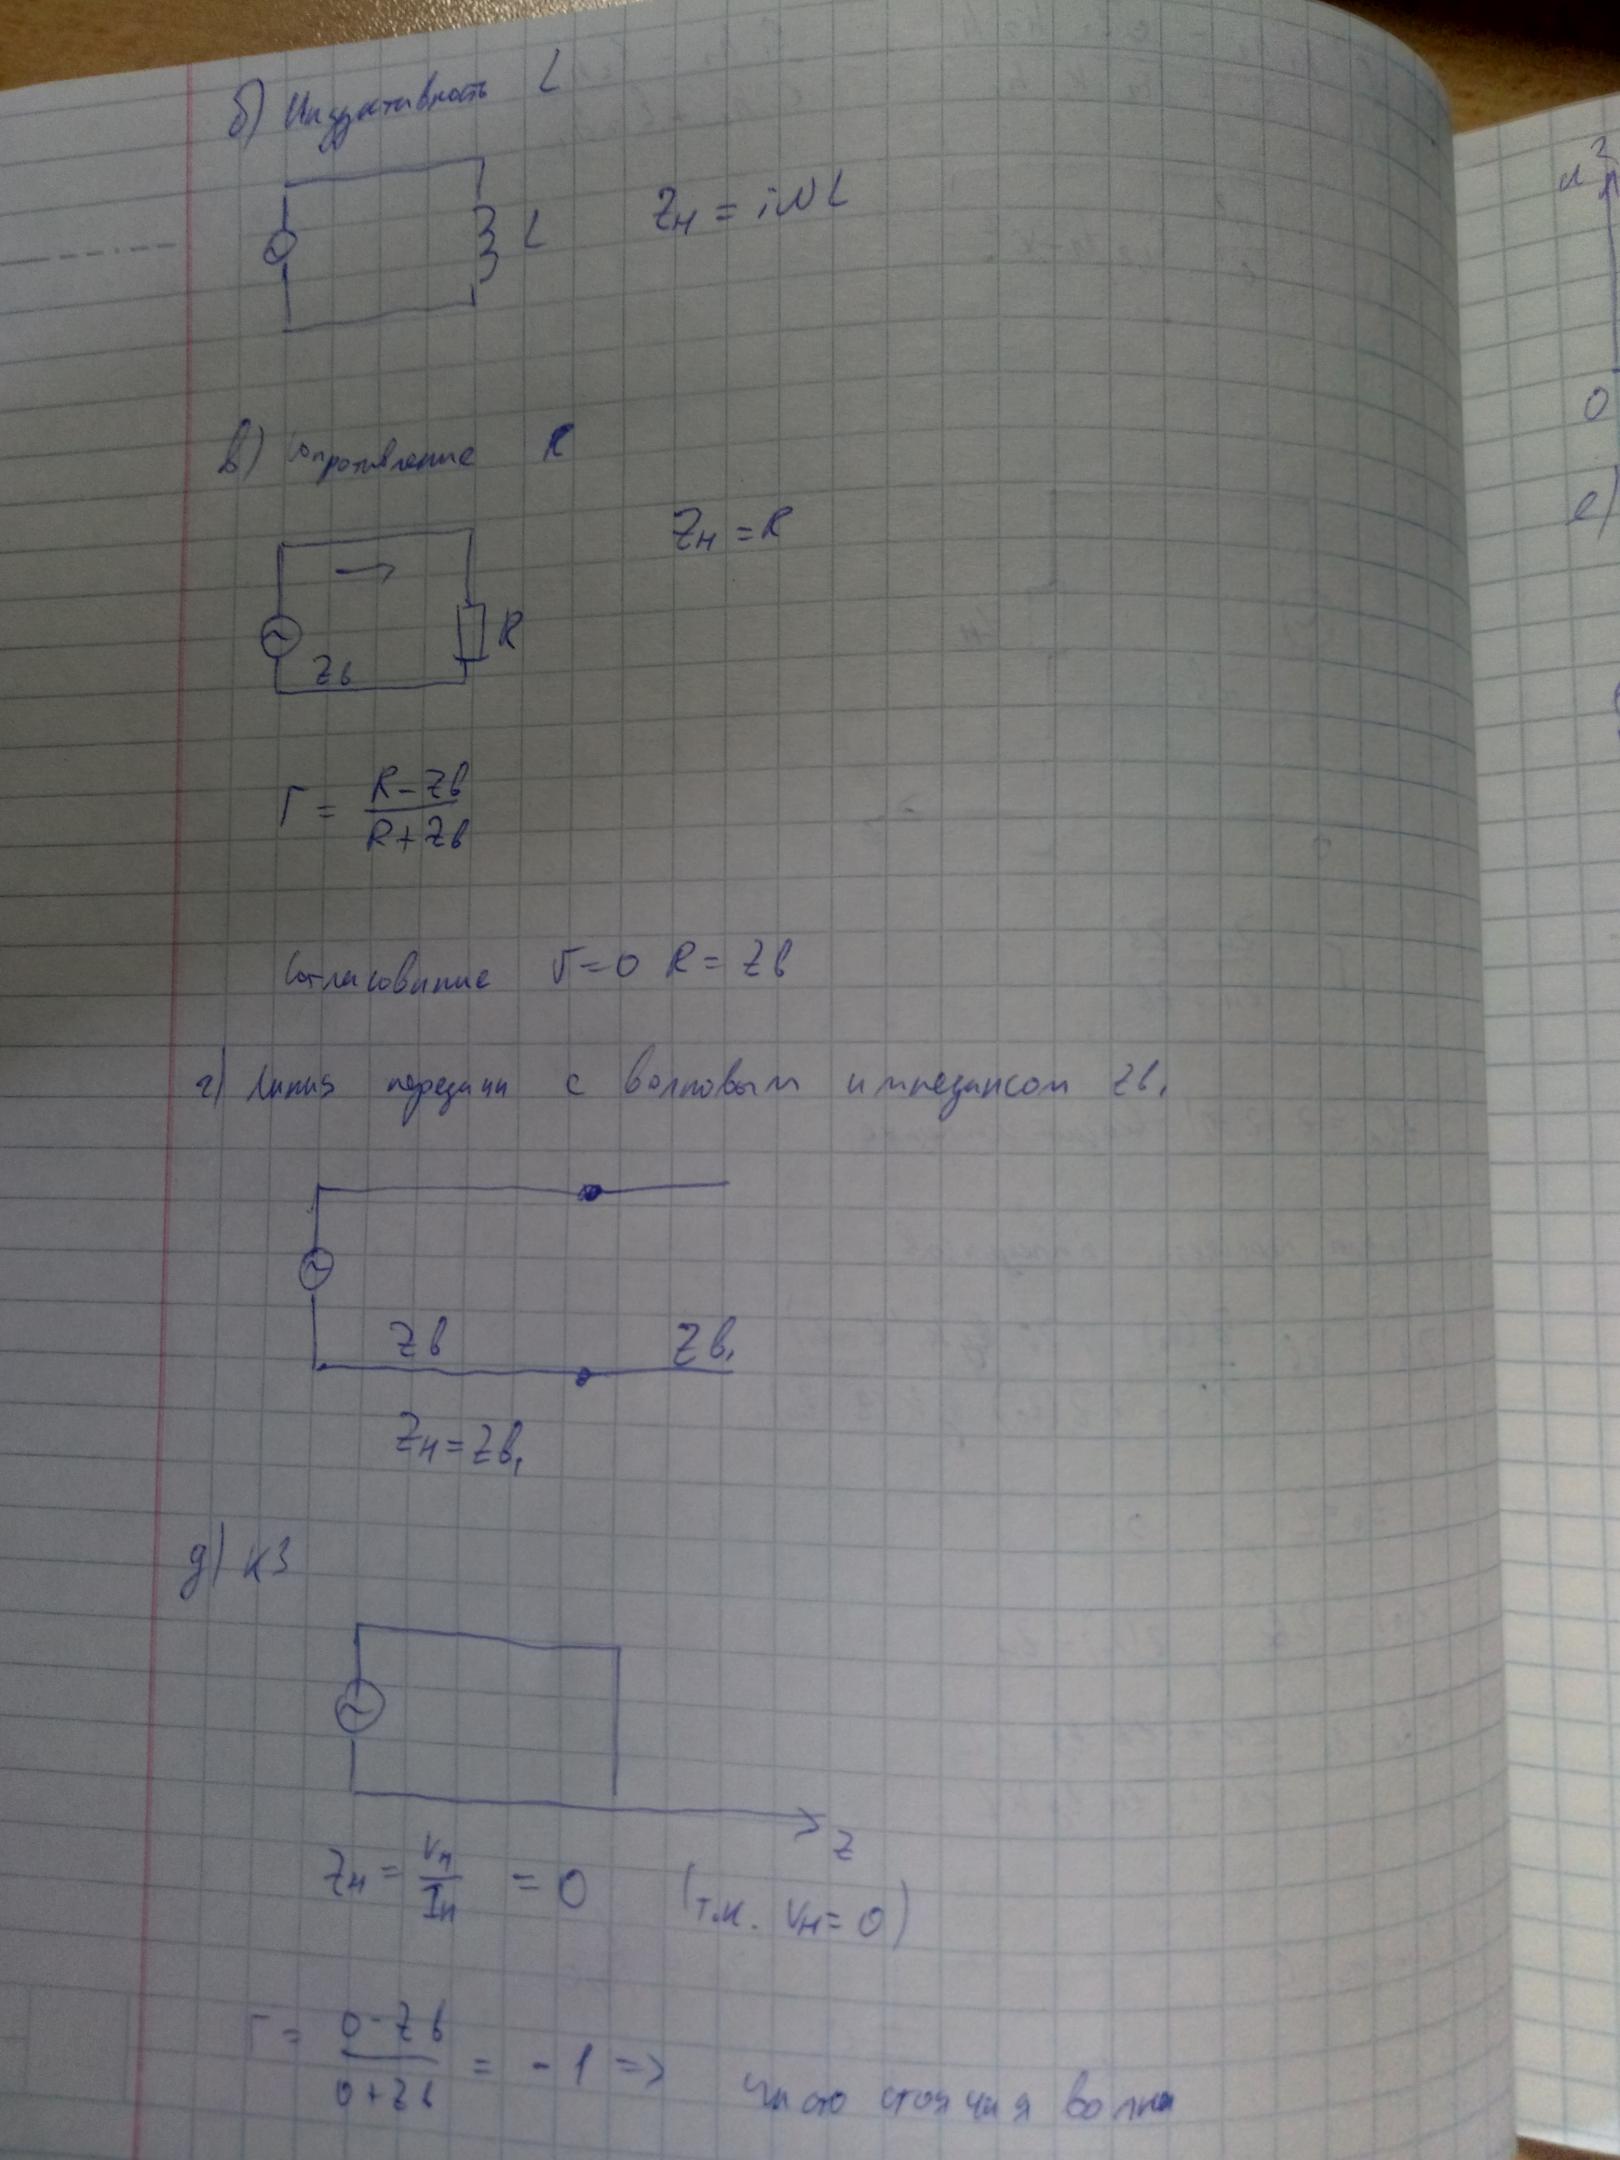 б) Индуктивность L
L
Zн = iωL
в) Сопротивление R
Zн = R
R
Zв
Г = (R − Zв) / (R + Zв)
Согласование Г=0 R = Zв
г) Линия передачи с волновым импедансом Zв₁
Zв
Zв₁
Zн = Zв₁
д) КЗ
z
Zн = Vн / Iн = 0 (т.к. Vн = 0)
Г = (0 − Zв) / (0 + Zв) = −1 => чисто стоячая волна
л
0
е)